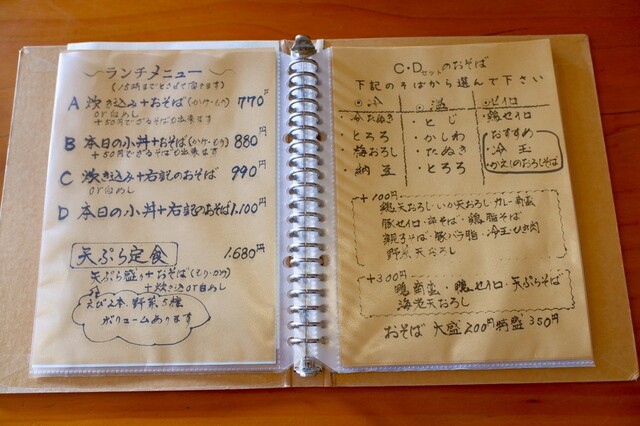 ランチメニュー
(15時までとさせて頂きます)
A 炊き込み+おそば(かけ・もり) 770円
or白めし
+50円でざるそばも出来ます
B 本日の小丼+おそば(かけ・もり) 880円
+50円でざるそばも出来ます
C 炊き込み+右記のおそば 990円
or白めし
D 本日の小丼+右記のおそば 1.100円
天ぷら定食 1.680円
天ぷら盛り+おそば(もり・かけ)
+炊き込or白めし
えび2本、野菜5種
ボリュームあります
C・Dセットのおそば
下記のそばから選んで下さい
冷 温 セイロ
・冷たぬき ・とじ ・鶏セイロ
・とろろ ・かしわ おすすめ
・梅おろし ・たぬき ・冷玉
・納豆 ・とろろ ・かえしのおろしそば
+100円
鶏天おろし・いか天おろし・カレー南蛮
豚セイロ・辛そば・鶏脂そば
親子そば・豚バラ脂・冷玉・ひき肉
野菜天おろし
+300円
鴨南蛮・鴨セイロ・天ぷらそば
海老天おろし
おそば 大盛200円 特盛350円